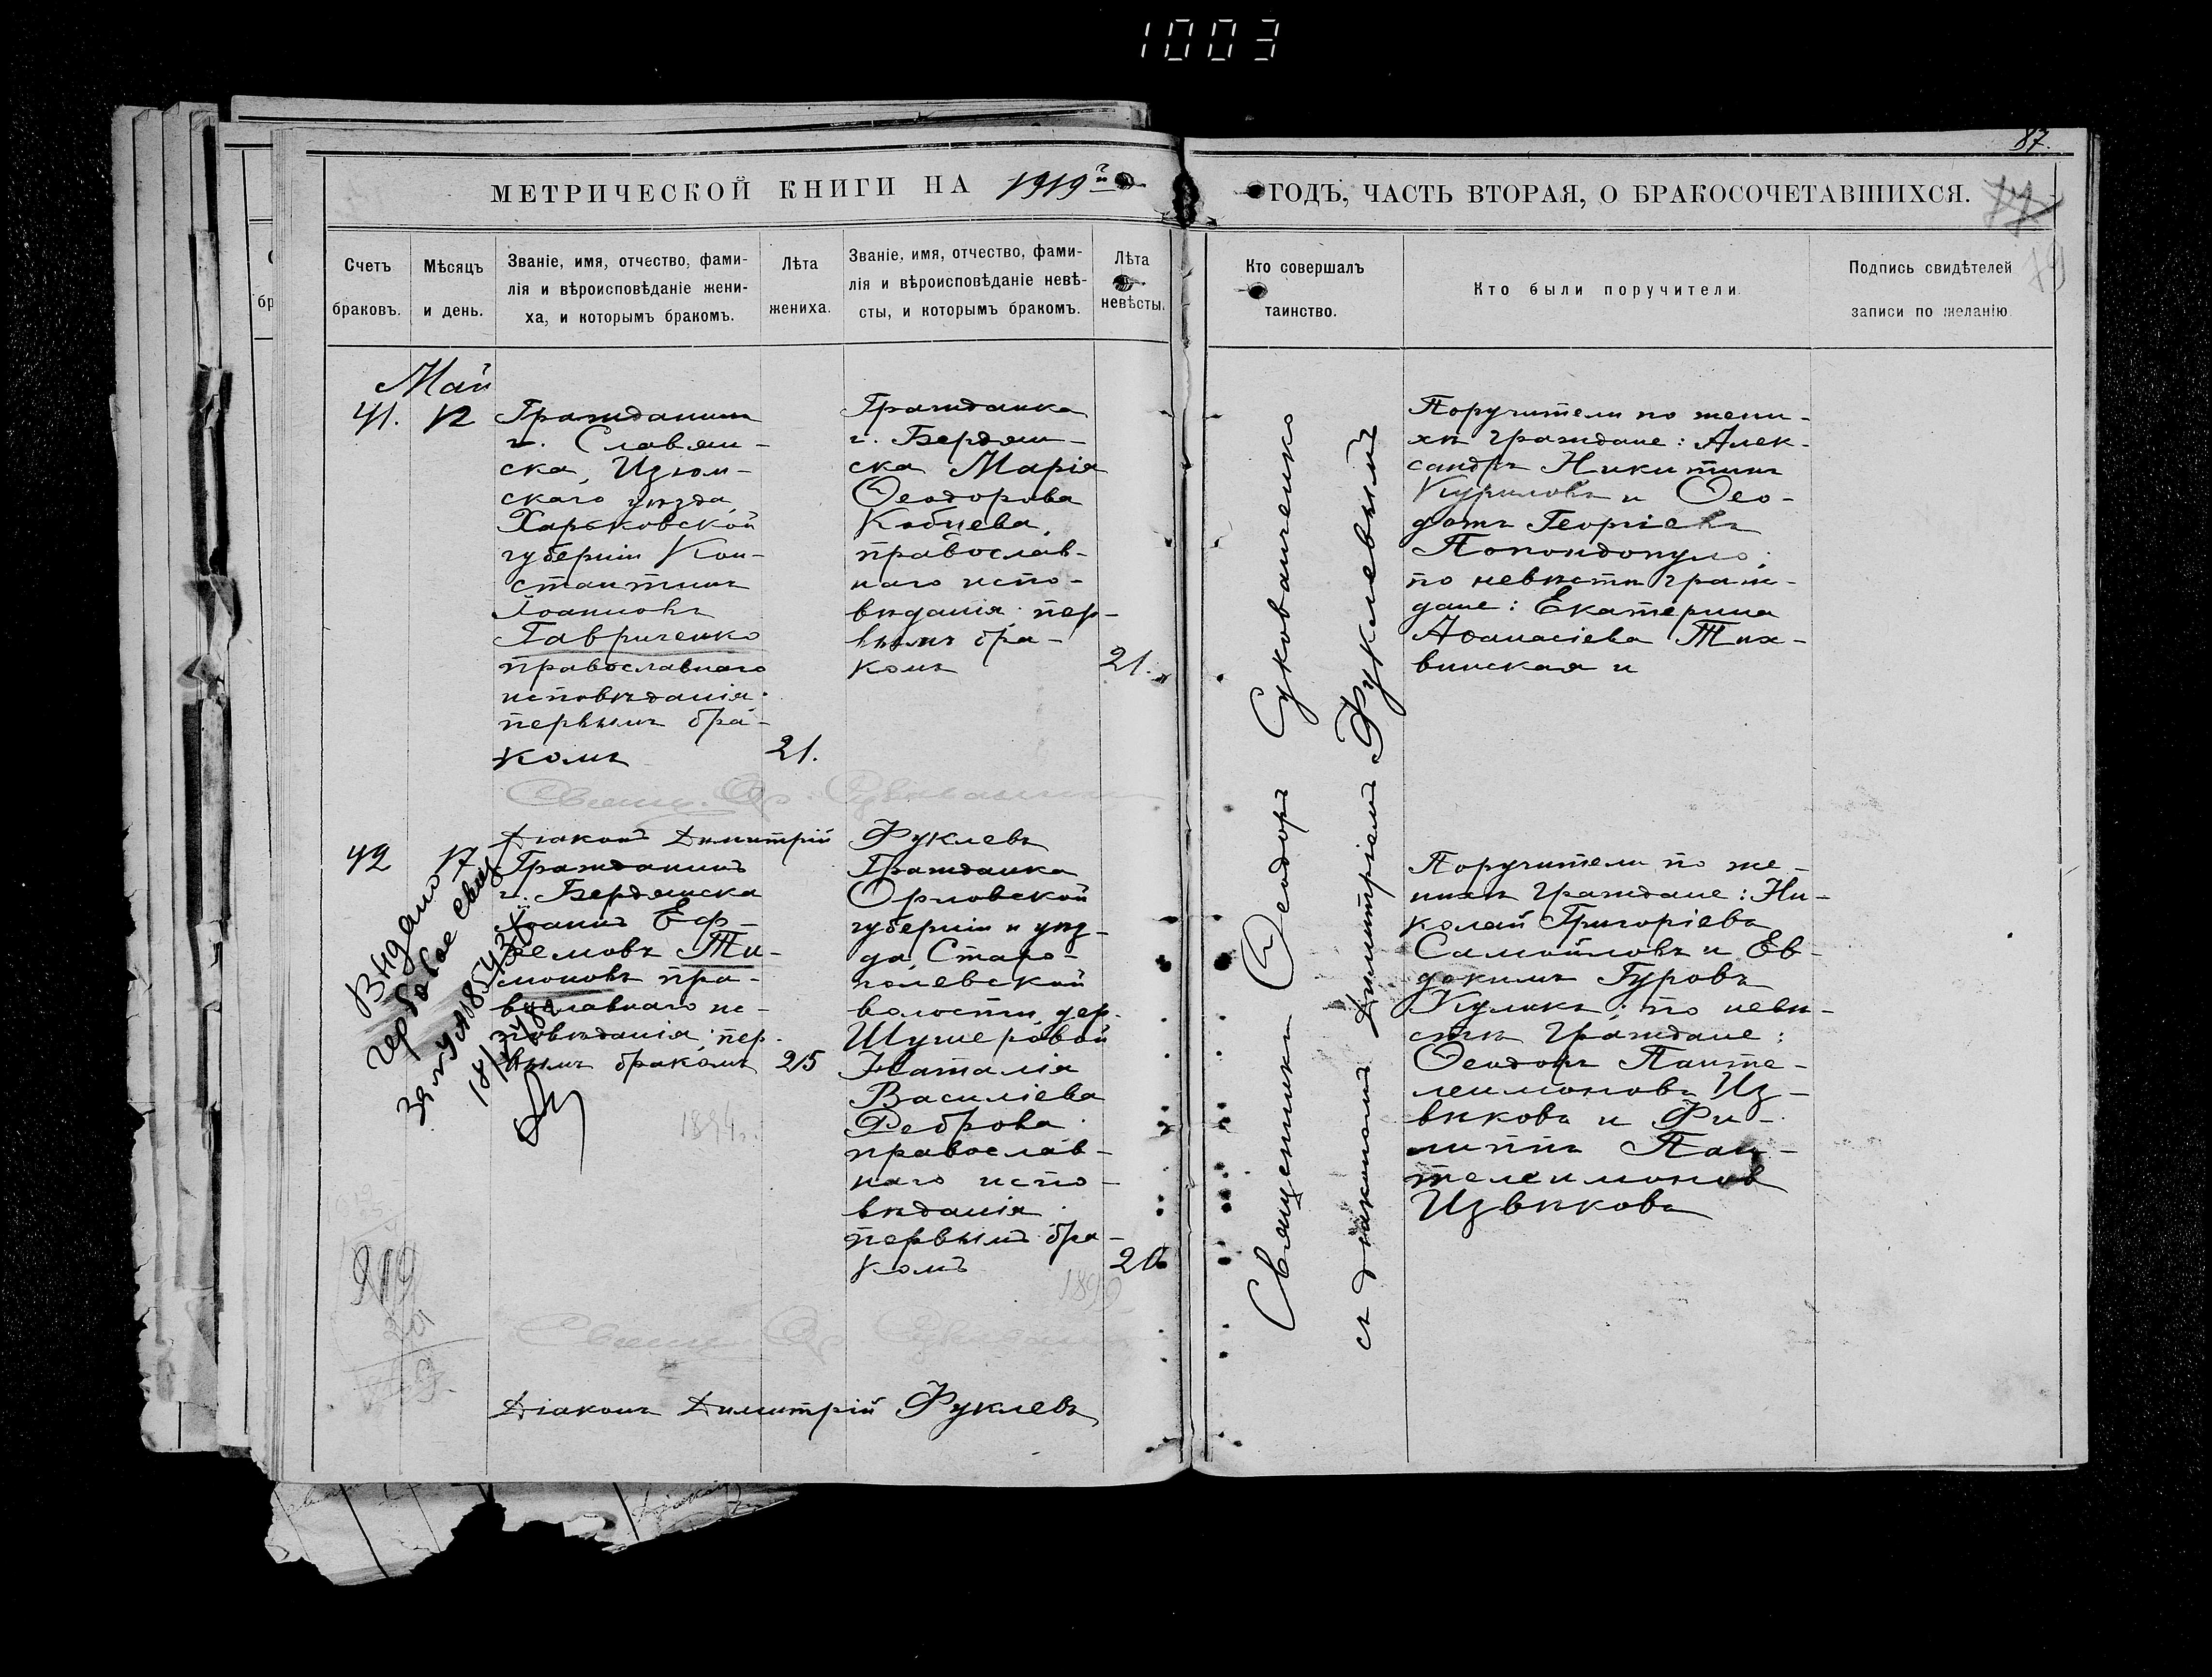 1003
87.
МЕТРИЧЕСКОЙ КНИГИ НА 1919й
ГОДЪ, ЧАСТЬ ВТОРАЯ, О БРАКОСОЧЕТАВШИХСЯ.
Счетъ
браковъ.
Мѣсяцъ
и день.
Званіе, имя, отчество, фами-
лія и вѣроисповѣданіе жени-
ха, и которымъ бракомъ.
Лѣта
жениха.
Званіе, имя, отчество, фами-
лія и вѣроисповѣданіе невѣ-
сты, и которымъ бракомъ.
Лѣта
невѣсты.
Кто совершалъ
таинство.
Кто были поручители.
Подпись свидѣтелей
записи по желанію.
Май
41. 12
Гражданинъ
г. Славян-
ска, Изюм-
скаго уѣзда,
Харьковской
губерніи Кон-
стантинъ
Іоанновъ
Гавриченко
православнаго
исповѣданія;
первымъ бра-
комъ
21.
Гражданка
г. Бердян-
ска Марія
Ѳеодорова
Кобцева,
православ-
наго испо-
вѣданія; пер-
вымъ бра-
комъ
21.
Священникъ Ѳеодоръ Сукованченко
съ діакономъ Димитріемъ Фуклевымъ
Поручители по жени-
хѣ граждане: Алек-
сандръ Никитинъ
Куриловъ и Ѳео-
дотъ Георгіевъ
Попондопуло;
по невѣстѣ граж-
дане: Екатерина
Аѳанасіева Тих-
винская и
Діаконъ Димитрій Фуклевъ
42 17
Гражданинъ
г. Бердянска
Іоаннъ Еф-
ремовъ Ти-
моновъ пра-
вославнаго ис-
повѣданія; пер-
вымъ бракомъ
25
1894г.
Видано
гербовое свид
Гражданка
Орловской
губерніи и уѣз-
да, Старо-
полевской
волости, дер.
Шушеровой
Наталія
Василіева
Реброва
православ-
наго испо-
вѣданія
первымъ бра-
комъ
20
Поручители по же-
нихѣ граждане: Ни-
колай Григоріевъ
Самойловъ и Ев-
докимъ Гуровъ
Куликъ; по невѣ-
стѣ граждане:
Ѳеодоръ Панте-
леимоновъ Из-
вѣковъ и Фи-
липпъ Пан-
телеимоновъ
Извѣковъ
Діаконъ Димитрій Фуклевъ